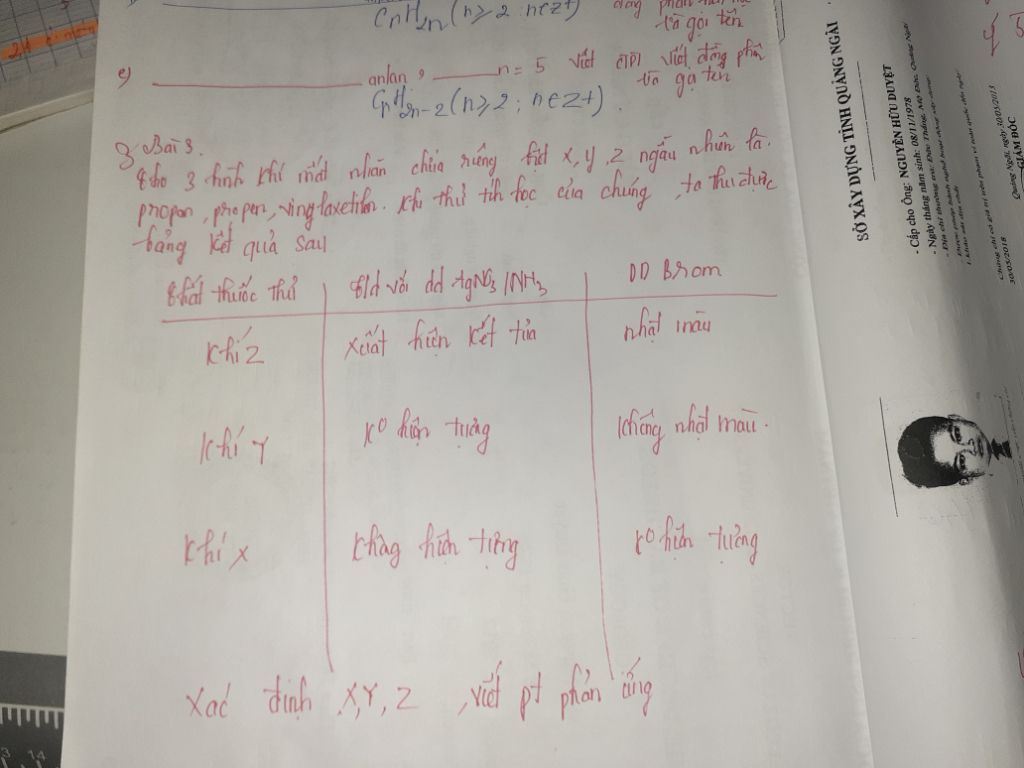 CnH2n (n≥2 ; n∈Z+)
và gọi tên
e) ____ ankan , ____ n = 5 viết CTPT viết đồng phân
và gọi tên
CnH2n-2 (n≥2 ; n∈Z+).
3 Bài 3.
Cho 3 bình khí mất nhãn chứa riêng biệt X, Y, Z ngẫu nhiên là
propan, propen, vinylaxetilen. Khi thử tính học của chúng, ta thu được
bảng kết quả sau
Chất thuốc thử t/d với dd AgNO3/NH3 DD Brom
Khí Z xuất hiện kết tủa nhạt màu
Khí Y Ko hiện tượng không nhạt màu.
Khí X không hiện tượng Ko hiện tượng
Xác định X, Y, Z , viết pt phản ứng
SỞ XÂY DỰNG TỈNH QUẢNG NGÃI
- Cấp cho Ông: NGUYỄN HỮU DUYỆT
- Ngày tháng năm sinh: 08/11/1978
30/05/2018
GIÁM ĐỐC